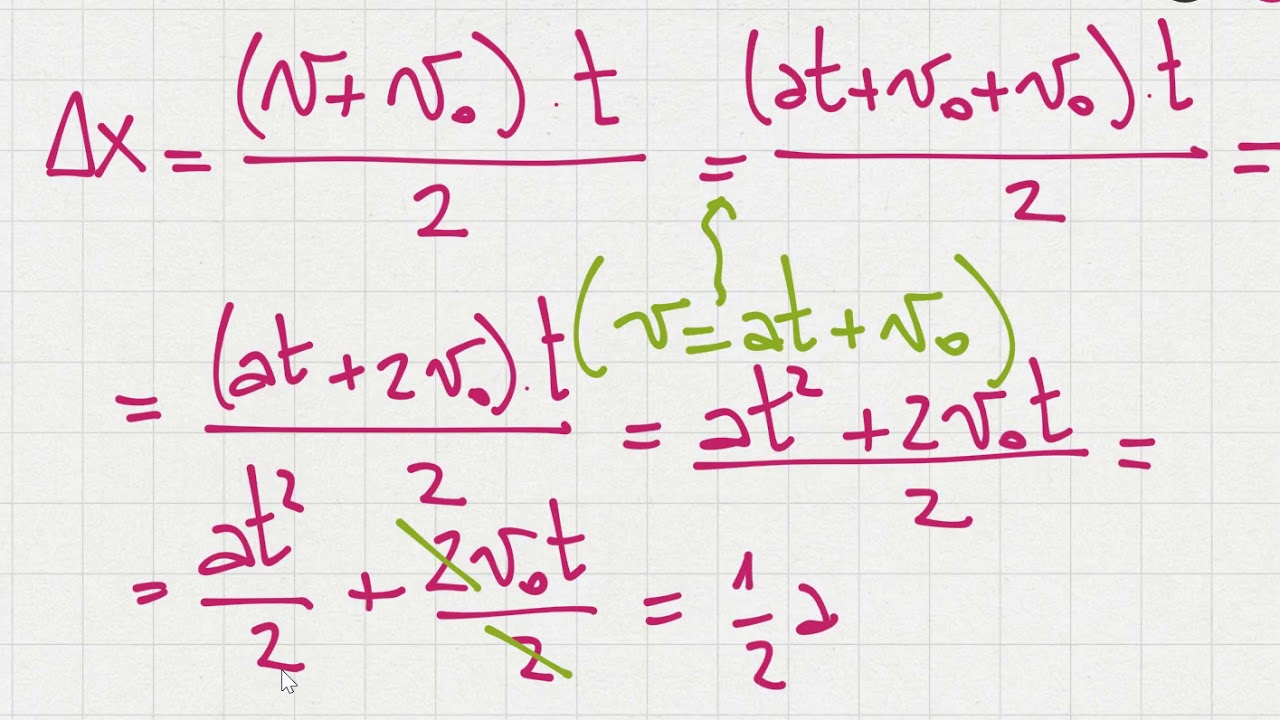 Δx = (v + v₀) · t / 2 = (at + v₀ + v₀) · t / 2 =
(v = at + v₀)
= (at + 2v₀) · t / 2 = at² + 2v₀t / 2 =
= at² / 2 + 2v₀t / 2 = 1/2 a